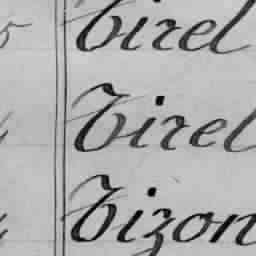 Tirel
Tirel
Tizon